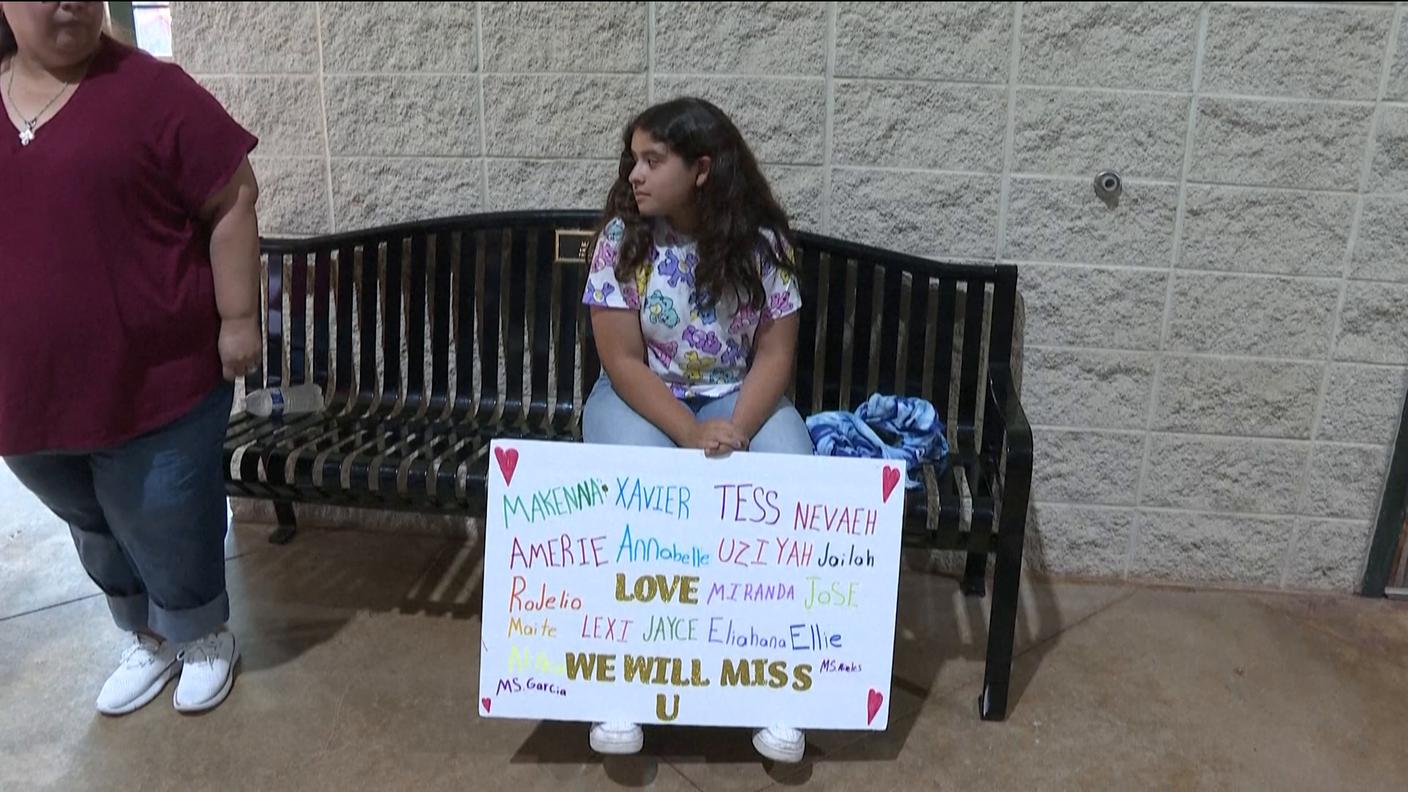 MAKENNA XAVIER TESS NEVAEH
AMERIE Annabelle UZIYAH Jailah
Rojelio LOVE MIRANDA JOSE
Maite LEXI JAYCE Eliahana Ellie
WE WILL MISS
MS. Garcia
U